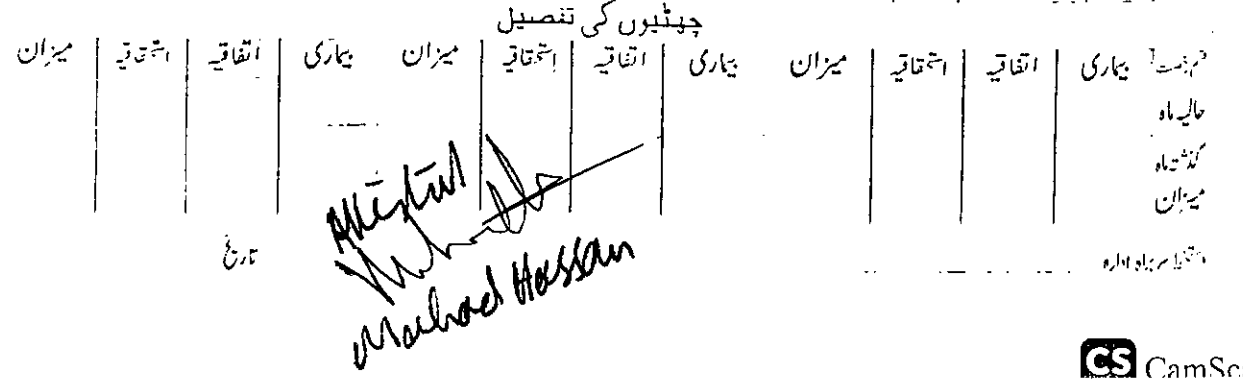 چھٹیوں کی تفصیل
قسم رخصت بیماری اتفاقیہ استحقاقیہ میزان بیماری اتفاقیہ استحقاقیہ میزان بیماری اتفاقیہ استحقاقیہ میزان
حالیہ ماہ
گذشتہ ماہ
میزان
دستخط سربراہ ادارہ تاریخ
Attested
Hassan
CS CamSc